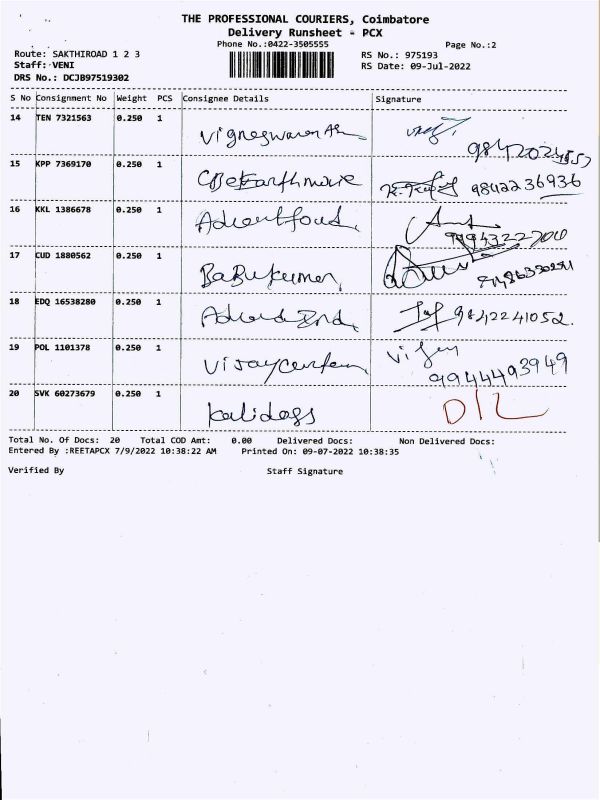 THE PROFESSIONAL COURIERS, Coimbatore
Delivery Runsheet - PCX
Phone No.:0422-3505555 Page No.:2
Route: SAKTHIROAD 1 2 3 RS No.: 975193
Staff: VENI RS Date: 09-Jul-2022
DRS No.: DCJB97519302
S No Consignment No Weight PCS Consignee Details Signature
14 TEN 7321563 0.250 1 Vigneswaran
15 KPP 7369170 0.250 1 9842236936
16 KKL 1386678 0.250 1
17 CUD 1880562 0.250 1 Babukumar
18 EDQ 16538280 0.250 1 9842241052.
19 POL 1101378 0.250 1 9944493949
20 SVK 60273679 0.250 1 Kalidass D/L
Total No. Of Docs: 20 Total COD Amt: 0.00 Delivered Docs: Non Delivered Docs:
Entered By :REETAPCX 7/9/2022 10:38:22 AM Printed On: 09-07-2022 10:38:35
Verified By Staff Signature